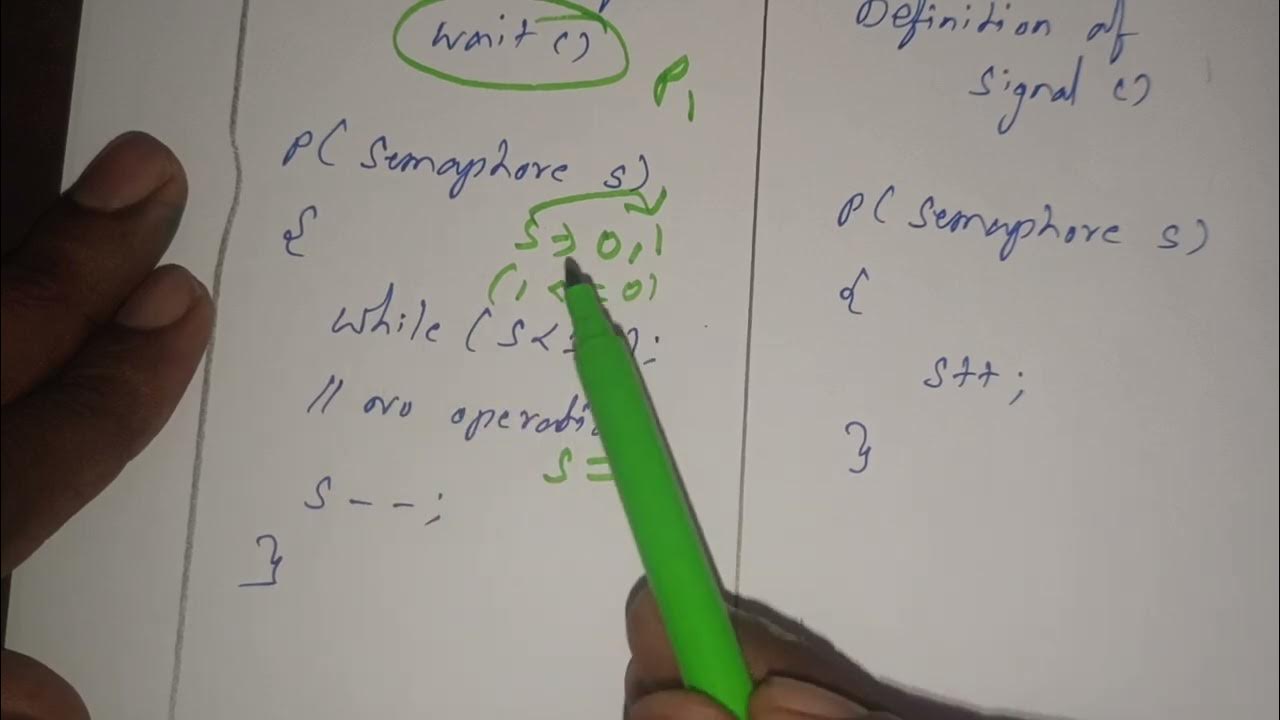 wait ()
P1
P( Semaphore s)
{
S => 0, 1
( 1 < = 0)
while ( S <
// no operati
S =
S - - ;
}
Definition of
Signal ()
P( Semaphore s)
{
S++ ;
}